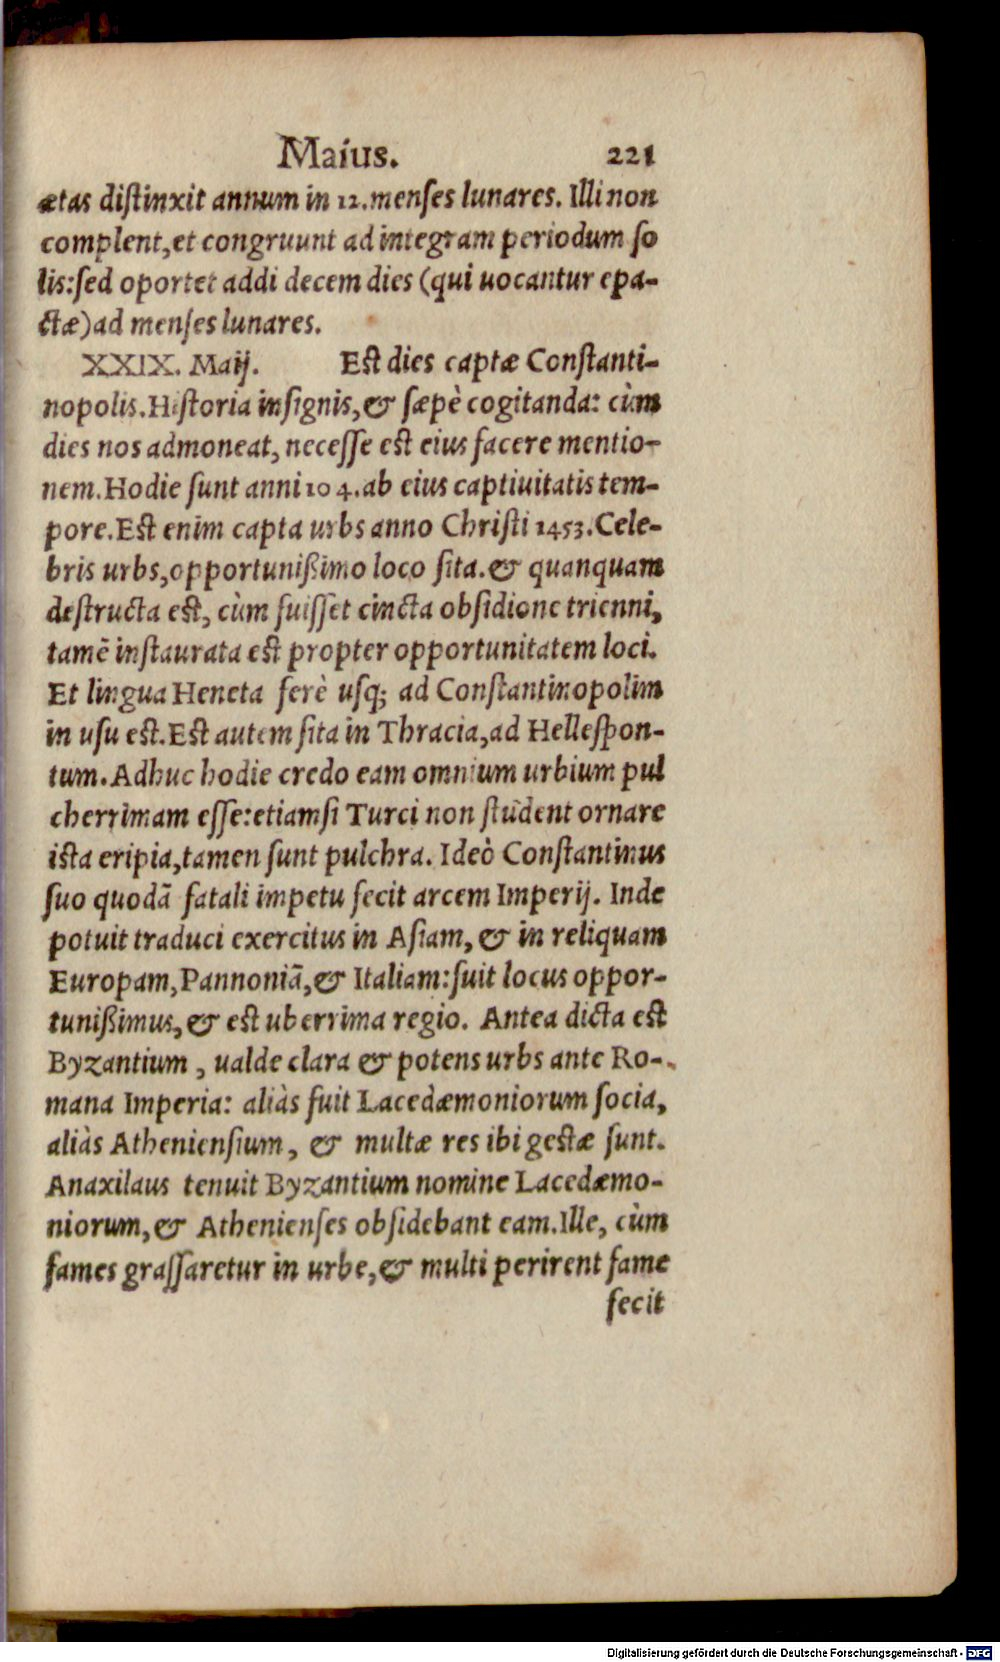 Maius. 221
ætas distinxit annum in 12. menses lunares. Illi non
complent, et congruunt ad integram periodum so
lis: sed oportet addi decem dies (qui uocantur epa-
ctæ) ad menses lunares.
XXIX. Maij. Est dies captæ Constanti-
nopolis. Historia insignis, & sæpè cogitanda: cùm
dies nos admoneat, necesse est eius facere mentio-
nem. Hodie sunt anni 104. ab eius captiuitatis tem-
pore. Est enim capta urbs anno Christi 1453. Cele-
bris urbs, opportunißimo loco sita. & quanquam
destructa est, cùm fuisset cincta obsidione trienni,
tamē instaurata est propter opportunitatem loci.
Et lingua Heneta ferè usq; ad Constantinopolim
in usu est. Est autem sita in Thracia, ad Hellespon-
tum. Adhuc hodie credo eam omnium urbium pul
cherrimam esse: etiamsi Turci non student ornare
ista eripia, tamen sunt pulchra. Ideò Constantinus
suo quodā fatali impetu fecit arcem Imperij. Inde
potuit traduci exercitus in Asiam, & in reliquam
Europam, Pannoniā, & Italiam: fuit locus oppor-
tunißimus, & est uberrima regio. Antea dicta est
Byzantium, ualde clara & potens urbs ante Ro-
mana Imperia: aliàs fuit Lacedæmoniorum socia,
aliàs Atheniensium, & multæ res ibi gestæ sunt.
Anaxilaus tenuit Byzantium nomine Lacedæmo-
niorum, & Athenienses obsidebant eam. Ille, cùm
fames grassaretur in urbe, & multi perirent fame
fecit
Digitalisierung gefördert durch die Deutsche Forschungsgemeinschaft - DFG